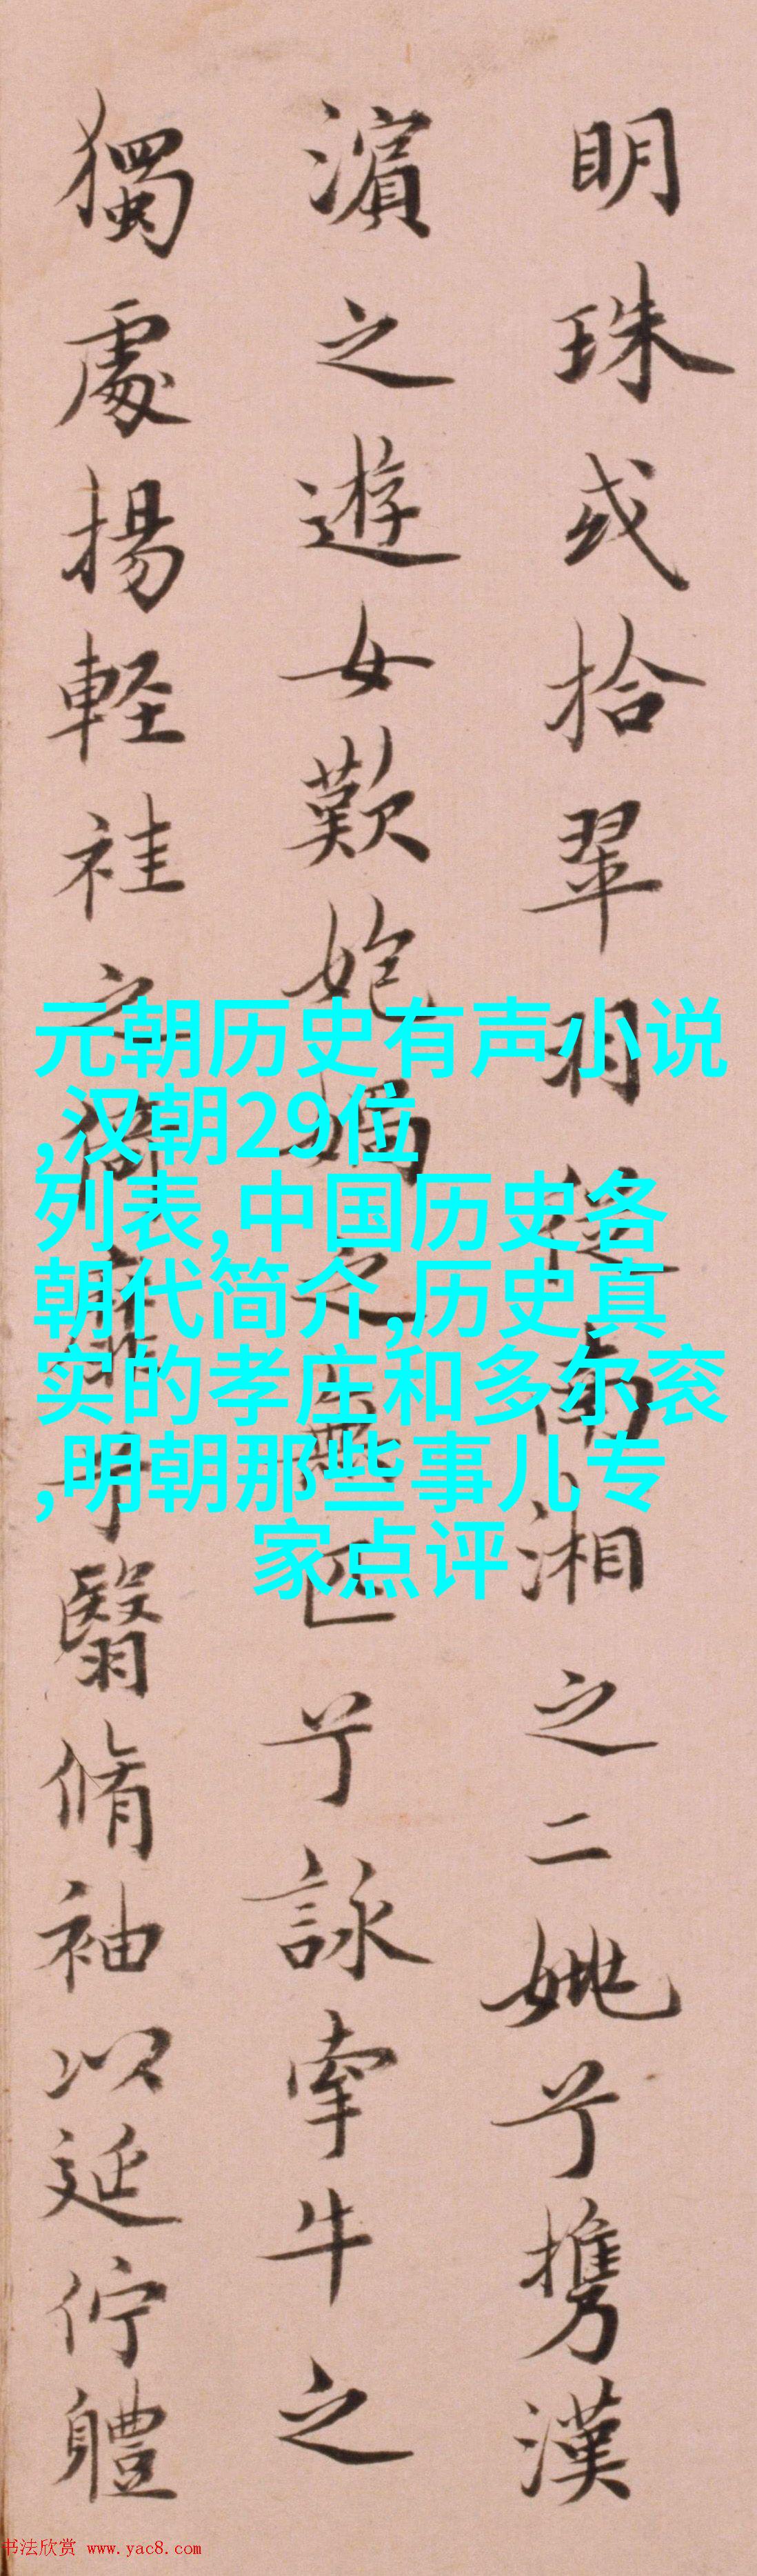 明珠或拾翠羽従南湘之二兮携漢
濱之遊女歎媧之無匹兮詠牽牛之
獨處揚軽袿之猗靡兮翳脩袖以延佇體
元朝历史有声小说
,汉朝29位
列表,中国历史各
朝代简介,历史真
实的孝庄和多尔衮
,明朝那些事儿专
家点评
书法欣赏 www.yac8.com